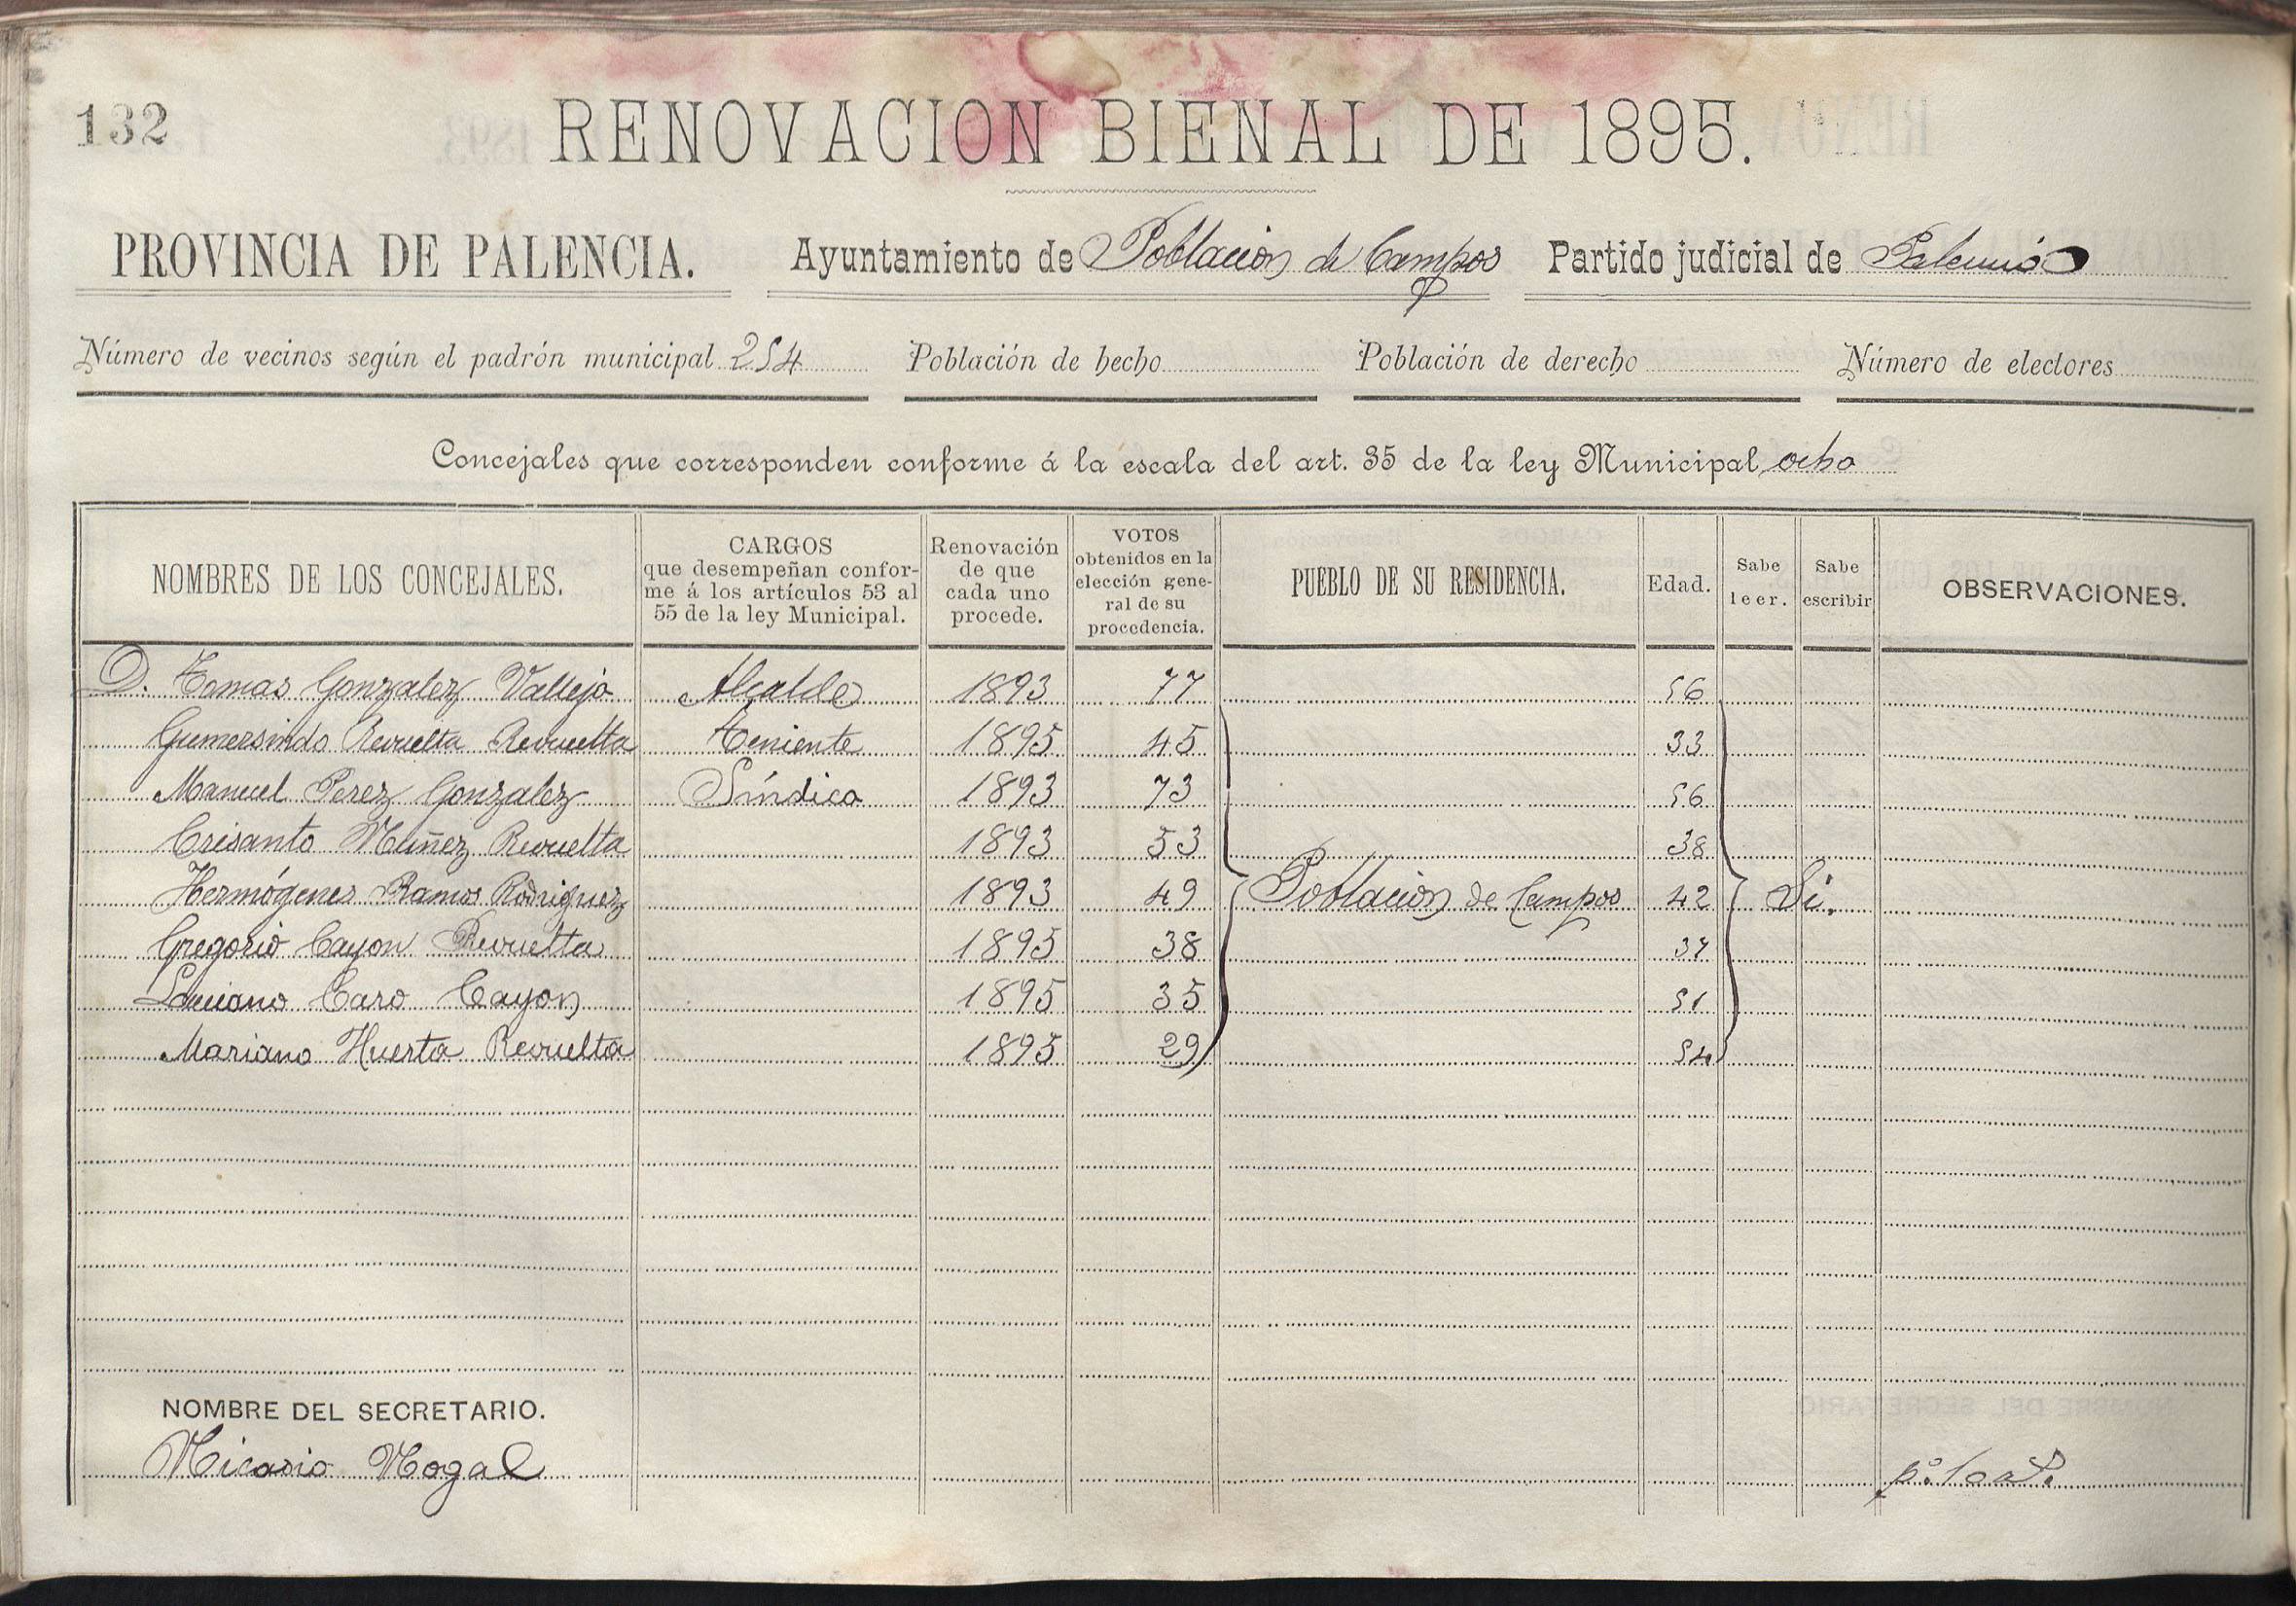 132
RENOVACION BIENAL DE 1895.
PROVINCIA DE PALENCIA. Ayuntamiento de Poblacion de Campos Partido judicial de Palencia
Número de vecinos según el padrón municipal 254 Población de hecho Población de derecho Número de electores
Concejales que corresponden conforme á la escala del art. 35 de la ley Municipal ocho
NOMBRES DE LOS CONCEJALES.
CARGOS
que desempeñan confor-
me á los artículos 53 al
55 de la ley Municipal.
Renovación
de que
cada uno
procede.
VOTOS
obtenidos en la
elección gene-
ral de su
procedencia.
PUEBLO DE SU RESIDENCIA.
Edad.
Sabe
leer.
Sabe
escribir
OBSERVACIONES.
D. Tomas Gonzalez Vallejo Alcalde 1893 77 56
Gumersindo Revuelta Revuelta Teniente 1895 45 33
Manuel Perez Gonzalez Síndico 1893 73 56
Crisanto Muñez Revuelta 1893 53 38
Hermógenes Ramos Rodriguez 1893 49 Poblacion de Campos 42 Si.
Gregorio Cayon Revuelta 1895 38 37
Luciano Caro Cayon 1895 35 51
Mariano Huerta Revuelta 1895 29 54
NOMBRE DEL SECRETARIO.
Nicasio Nogal